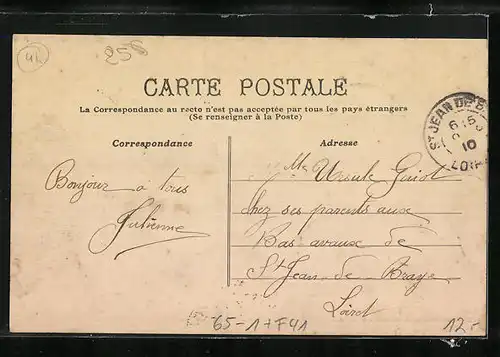 25
CARTE POSTALE
La Correspondance au recto n'est pas acceptée par tous les pays étrangers
(Se renseigner à la Poste)
Correspondance
Adresse
Bonjour à tous
Julienne
Mlle Ursule
Chez ses parents aux
Bas avaux de
St Jean de Braye
Loiret
ST JEAN DE B
6
10
LOIR
65-1+F41
12.-